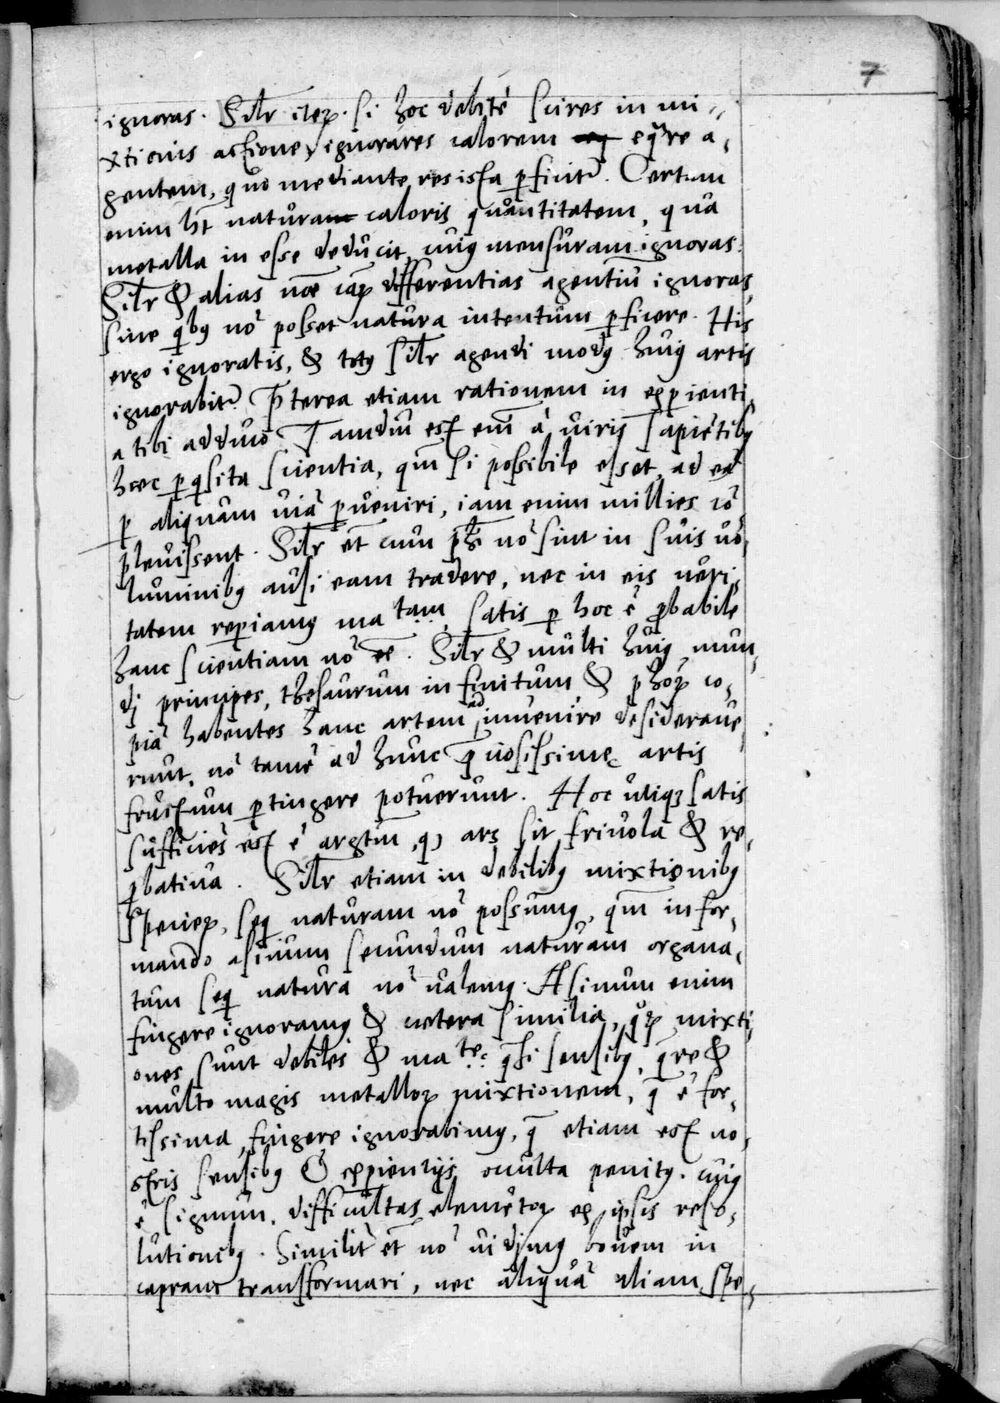 7
ignoras. Silr̄ iteꝝ. si hoc debite scires in mi-
xtionis actione, ignorares calorem eq̄re a-
gentem, quo mediante res ista ꝑficitr̄. Certum
enim ht̄ natura caloris quantitatem, qua
metalla in esse deducit, cuiꝰ mensuram ignoras.
Silr̄ & alias differentias agentiū ignoras,
sine qͥbꝰ nō posset natura intentum ꝑficere. His
ergo ignoratis, & totꝰ silr̄ agendi modꝰ huiꝰ artis
ignorabitr̄. P̄terea etiam rationem in exꝑienti-
a tibi adduco. Tamdiu est em̄ à viris sapiētibꝰ
haec ꝑqͥsita scientia, qm̄ si possibile esset ad eā
ꝑ aliquam uiā ꝑueniri, iam enim millies cō-
pleuissent. Silr̄ et cum ph̄i nō sint in suis uo-
luminibꝰ ausi eam tradere, nec in eis ueri-
tatem reperiamꝰ ma tam, satis ꝑ hoc ē ꝓbabile
hanc scientiam nō eē. Silr̄ & multi huiꝰ mun-
di principes, thesaurum infinitum & phoꝝ co-
piā habentes hanc artem ad inuenire desideraue-
runt, nō tamē ad hunc p̄ciosissimę artis
fructum ꝑtingere potuerunt. Hoc utiqꝫ satis
sufficiēs argtm̄, ꝙ ars sit friuola & re-
ꝓbatiua. Silr̄ etiam in debilibꝰ mixtionibꝰ
specieꝝ, seqͥ naturam nō possumꝰ, qm̄ in for-
mando asinum secundum naturam organa-
tam seqͥ natura nō ualemꝰ. Asinum enim
fingere ignoramꝰ & cetera similia, qͣꝝ mixti-
ones sunt debiles & ma te qͣsi sensibꝰ, qͣre &
multo magis metalloꝝ mixtionem, q̄ ē for-
tissima, fingere ignorabimꝰ, q̄ etiam est no-
stris sensibꝰ & exꝑientijs occulta penitꝰ. cuiꝰ
ē signum, difficultas elemētoꝝ ex ipsis reso-
lutionibꝰ. Similit̄ et nō uidimꝰ bouem in
capram transformari, nec aliquā aliam spe-